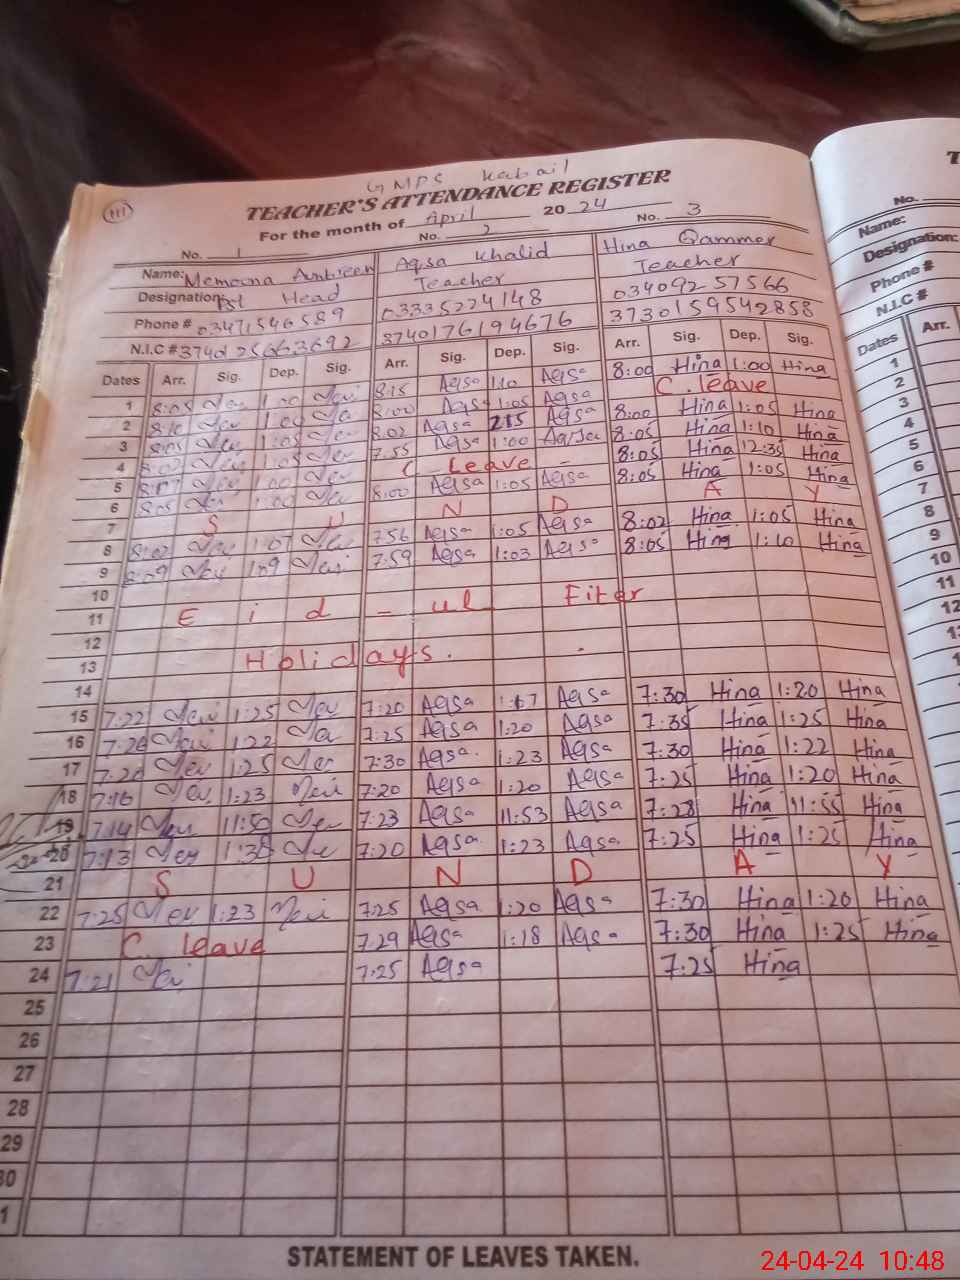 GMPS Kabail
111
TEACHER'S ATTENDANCE REGISTER
For the month of April 2024
No. 1 No. 2 No. 3
Name: Memoona Ambreen Aqsa Khalid Hina Qammer
Designation: Head Teacher Teacher
Phone # 03471546589 03335224148 03409257566
N.I.C # 3740125663692 3740176194676 3730159542858
Dates Arr. Sig. Dep. Sig. Arr. Sig. Dep. Sig. Arr. Sig. Dep. Sig.
1 8:05 1:00 8:15 Aqsa 1:10 Aqsa 8:00 Hina 1:00 Hina
2 8:10 8:00 Aqsa 1:05 Aqsa C. leave
3 8:05 1:05 8:02 Aqsa 2:15 Aqsa 8:00 Hina 1:05 Hina
4 1:05 7:55 Aqsa 1:00 Aqsa 8:05 Hina 1:10 Hina
5 1:00 C Leave 8:05 Hina 12:35 Hina
6 8:05 1:00 8:00 Aqsa 1:05 Aqsa 8:05 Hina 1:05 Hina
7 S U N D A Y
8 8:02 1:07 7:56 Aqsa 1:05 Aqsa 8:02 Hina 1:05 Hina
9 8:09 1:09 7:59 Aqsa 1:03 Aqsa 8:05 Hina 1:10 Hina
10
11 Eid - ul Fiter
12
13 Holidays.
14
15 7:22 1:25 7:20 Aqsa 1:17 Aqsa 7:30 Hina 1:20 Hina
16 7:26 1:22 7:25 Aqsa 1:20 Aqsa 7:35 Hina 1:25 Hina
17 7:20 1:25 7:30 Aqsa 1:23 Aqsa 7:30 Hina 1:22 Hina
18 7:16 1:23 7:20 Aqsa 1:20 Aqsa 7:25 Hina 1:20 Hina
19 7:14 11:50 7:23 Aqsa 11:53 Aqsa 7:28 Hina 11:55 Hina
20 7:13 1:38 7:20 Aqsa 1:23 Aqsa 7:25 Hina 1:25 Hina
21 S U N D A Y
22 7:25 1:23 7:25 Aqsa 1:20 Aqsa 7:30 Hina 1:20 Hina
23 C. leave 7:29 Aqsa 1:18 Aqsa 7:30 Hina 1:25 Hina
24 7:21 7:25 Aqsa 7:25 Hina
25
26
27
28
29
30
1
STATEMENT OF LEAVES TAKEN.
T
No.
Name:
Designation:
Phone #
N.I.C #
Dates Arr.
1
2
3
4
5
6
7
8
9
10
11
12
24-04-24 10:48